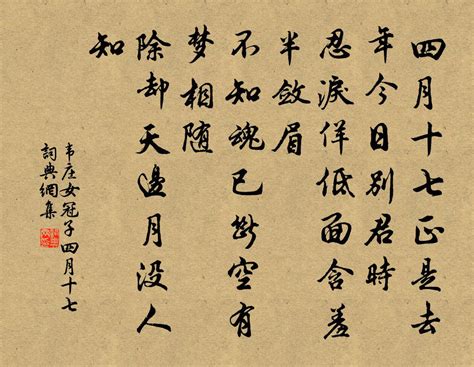 四月十七正是去
年今日别君時
忍淚佯低面含羞
半斂眉
不知魂已断空有
梦相随
除却天邊月没人
知
韦庄女冠子四月十七
詞典網集